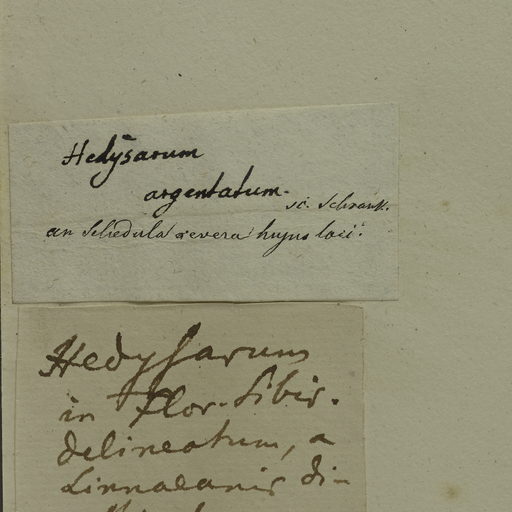 Hedÿsarum
argentatum.
sc. Schrank.
an Schedula revera hujus loci?
Hedysarum
in Flor. Sibir.
delineatum, a
Linnaeanis di-